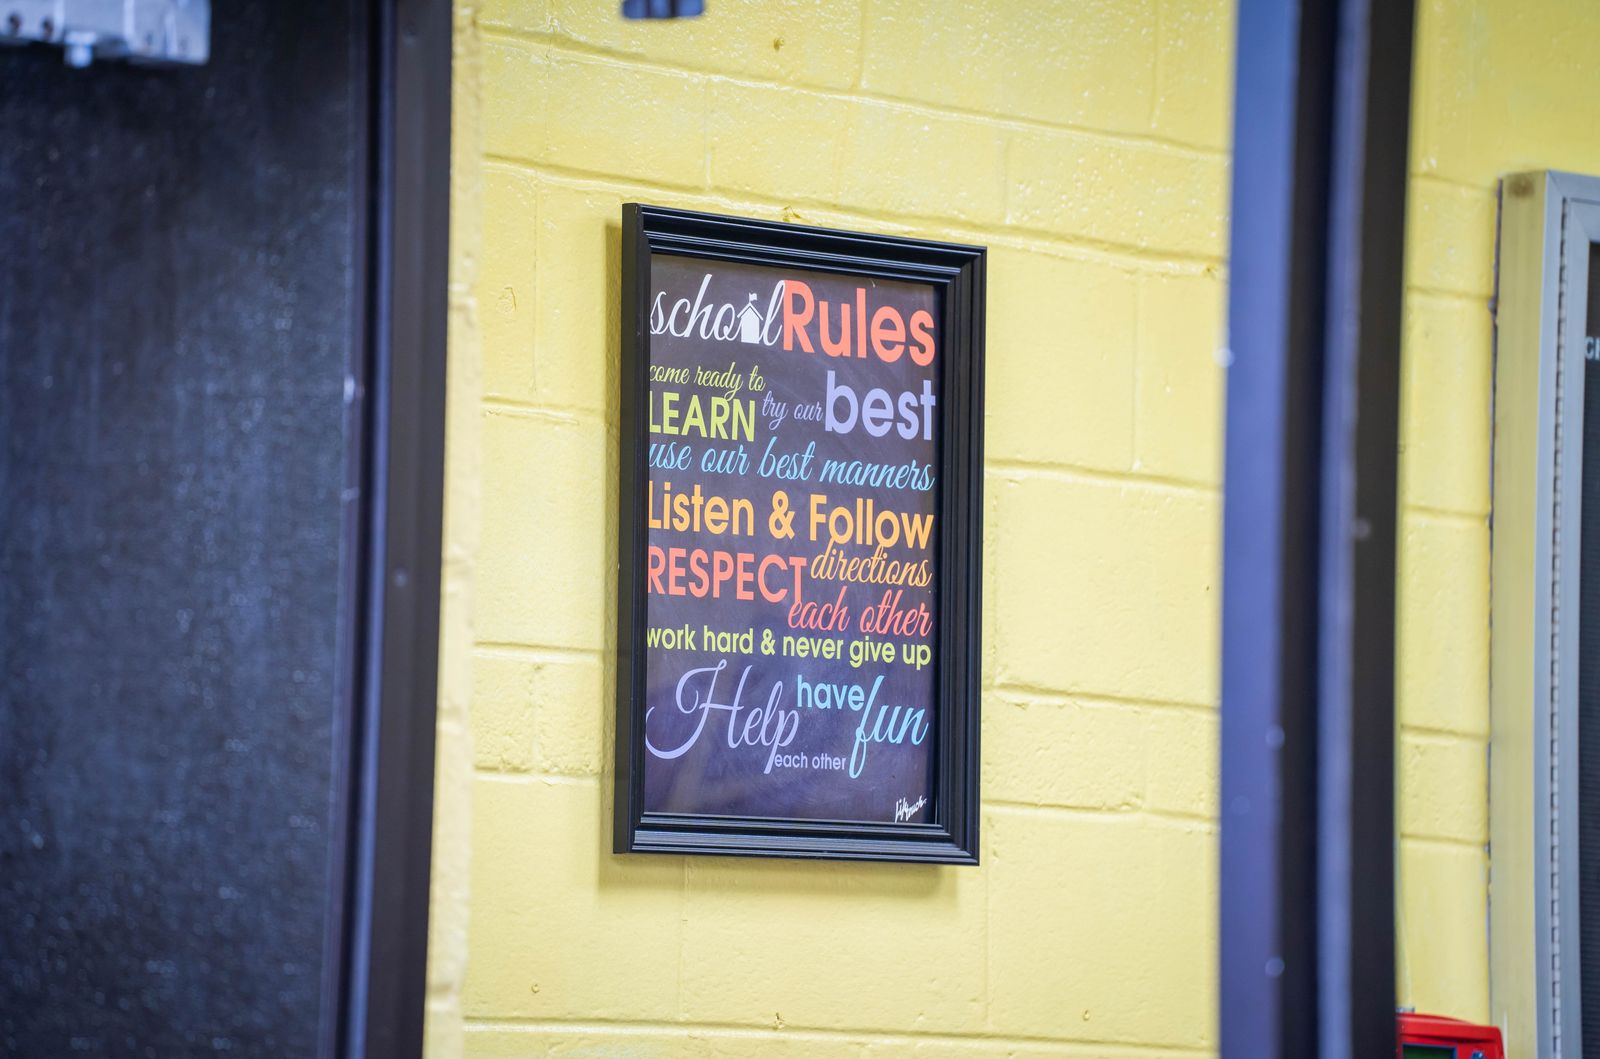 school Rules
come ready to
LEARN try our best
use our best manners
Listen & Follow
directions
RESPECT
each other
work hard & never give up
Help
each other
have fun